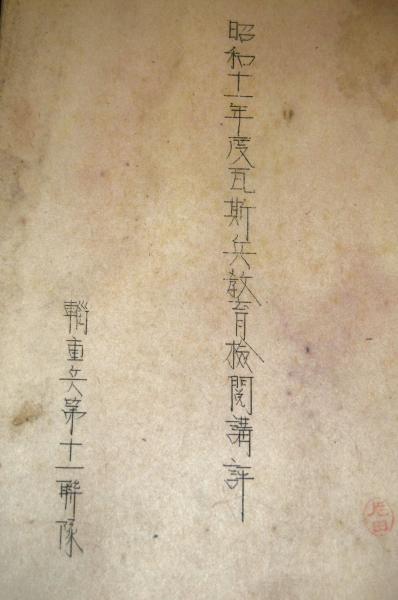 昭和十一年度瓦斯兵教育檢閲講評
輜重兵第十一聯隊